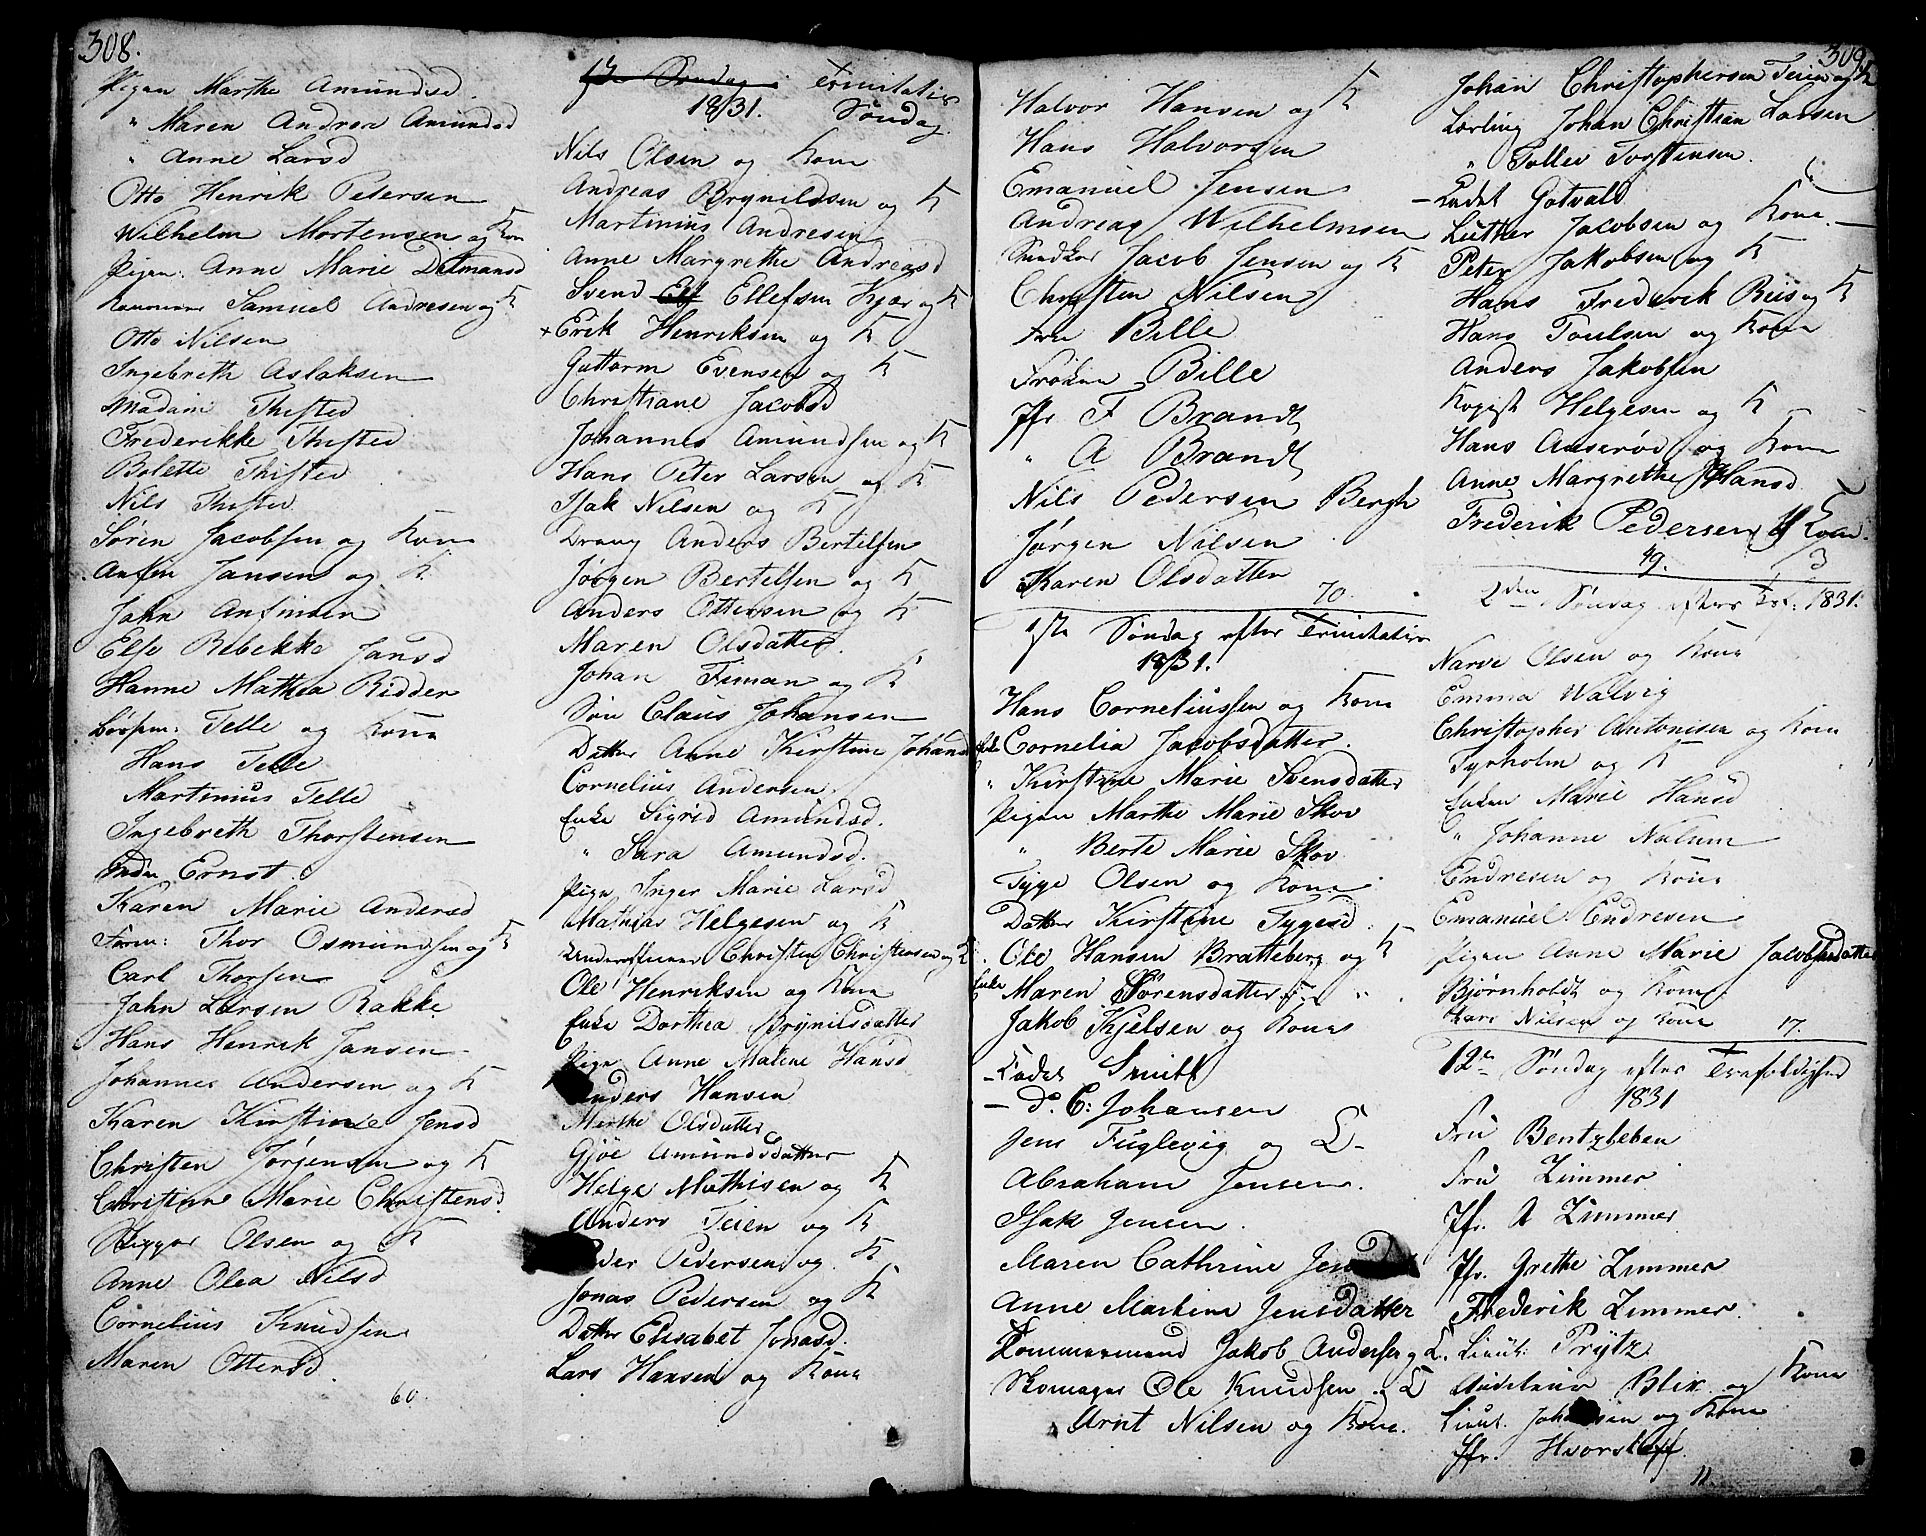 308.
Pigen Marthe Amundsd.
" Maren Andrea Amundsd
" Anne Larsd
Otto Henrik Petersen
Wilhelm Mortensen og Kon
Pigen: Anne Marie Dahlmansd
Samuel Andresen og K
Otto Nilsen
Ingebreth Aslaksen
Madam Thisted
Frederikke Thisted
Bolette Thisted
Nils Thisted
Søren Jacobsen og Kone
Anfin Jansen og K
Jahn Anfinsen
Else Rebekke Jansd
Hanne Mathea Ridder
Telle og Kone
Hans Telle
Martinius Telle
Ingebreth Thorstensen
Ernst.
Karen Marie Andersd
Thor Osmundsen og K
Carl Thorsen
Jahn Larsen Rakke
Hans Henrik Jansen
Johannes Andersen og K
Karen Kirstine Jensd
Christen Jørgensen og K
Christiane Marie Christensd.
Olsen og K
Anne Olea Nilsd
Cornelius Knudsen
Maren Ottersd.
60.
Søndag Trinitatis
1831. Søndag
Nils Olsen og Kone
Andreas Brynildsen og K
Martinius Andresen
Anne Margrethe Andreasd
Svend Ellefsen Kjær og K
× Erik Henriksen og K
Guttorm Evensen og K
Christiane Jacobsd
Johannes Amundsen og K
Hans Peter Larsen og K
Isak Nilsen og K
Dreng Anders Bertelsen
Jørgen Bertelsen og K
Anders Ottersen og K
Maren Olsdatter.
Johan Timan og K
Søn Claus Johansen
Datter Anne Kirstine Johansd
Cornelius Andersen
Enke Sigrid Amundsd.
" Sara Amundsd.
Pige Inger Marie Larsd
Mathias Helgesen og K
Christen Christensen og K
Ole Henriksen og Kone
Enke Dorthea Brynilsdatter
Pige Anne Malene Hansd
Anders Hansen
Marthe Olsdatter
Gjøe Amundsdatter
Helge Mathisen og K
Anders Teien og K
Peder Pedersen og K
Jonas Pedersen og K
Datter Elisabet Jonasd.
Lars Hansen og Kone
Halvor Hansen og K
Hans Halvorsen
Emanuel Jensen
Andreas Wilhelmsen
Jacob Jensen og K
Christen Nilsen
Fru Bille
Frøken Bille
Jfr F Brandt
" A Brandt
Nils Pedersen Bergh
Jørgen Nilsen
Karen Olsdatter
70.
1ste Søndag efter Trinitatis
1831.
Hans Corneliussen og Kone
Enke Cornelia Jacobsdatter.
" Kirstine Marie Svensdatter
Pigen Marthe Marie Skov
" Berte Marie Skov
Tyge Olsen og Kone
Datter Kirstine Tygesd.
Ole Hansen Bratteberg og K
Enke Maren Sørensdatter
Jakob Kjelsen og Kone
— Cadet Smitt
— do. C: Johansen
Jens Fuglevig og K
Abraham Jensen.
Isak Jensen.
Maren Cathrine
Anne Martine Jensdatter
Tommermand Jakob Andersen og K.
Skomager Ole Knudsen og K
Arnt Nilsen og Kone.
309
Johan Christophersen Teien og K
Lærling Johan Christian Larsen
" Tollev Torstensen.
— Cadet Gotvald
Luther Jacobsen og Kone —
Peter Jakobsen og K
Hans Frederik Beis og K
Hans Poulsen og Kone
Anders Jakobsen
Kopist Helgesen og K
Hans Anserød og Kone
Anne Margrethe Hansd
Frederik Pedersen og Kone.
49.
2den Søndag efter Tref: 1831.
Narve Olsen og Kone
Emma Walvig
Christopher Antonisen og Kone
Tyrholm og K
Enken Marie Hansd
" Johanne Nalum
Endresen og Kone
Emanuel Endresen
Pigen Anne Marie Jacobsdatter
Bjørnholdt og Kone
Lars Nilsen og Kone 17.
12te Søndag efter Trefoldighed
1831
Fru Bentzleben
Fru Zimmer
Jfr. A Zimmer
Jfr. Grethe Zimmer
Frederik Zimmer
Lieut: Prytz
Blix og Kone
Lieut. Johansen og Kone
Jfr. Hvorsleff
11